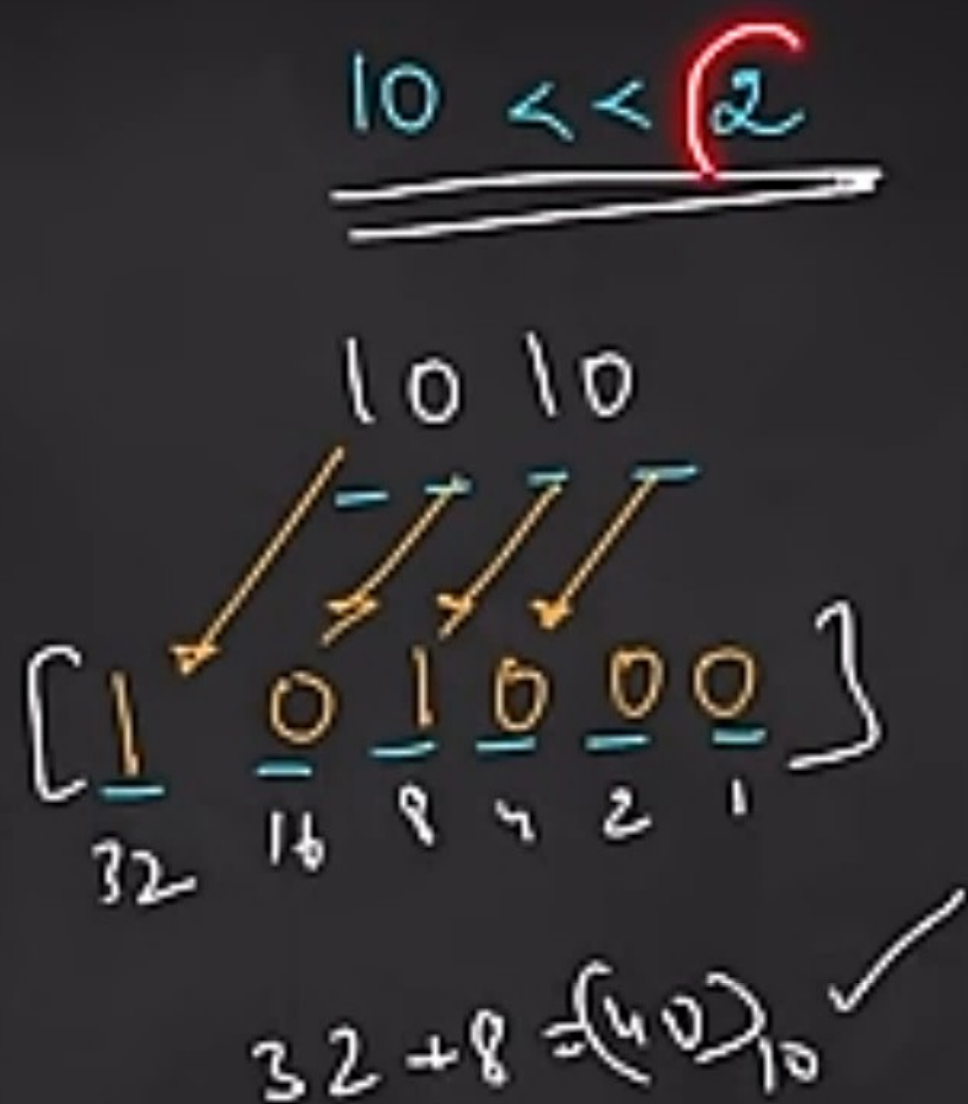 10 << 2
1010
[1 0 1 0 0 0]
32 16 8 4 2 1
32+8=(40)10 ✓